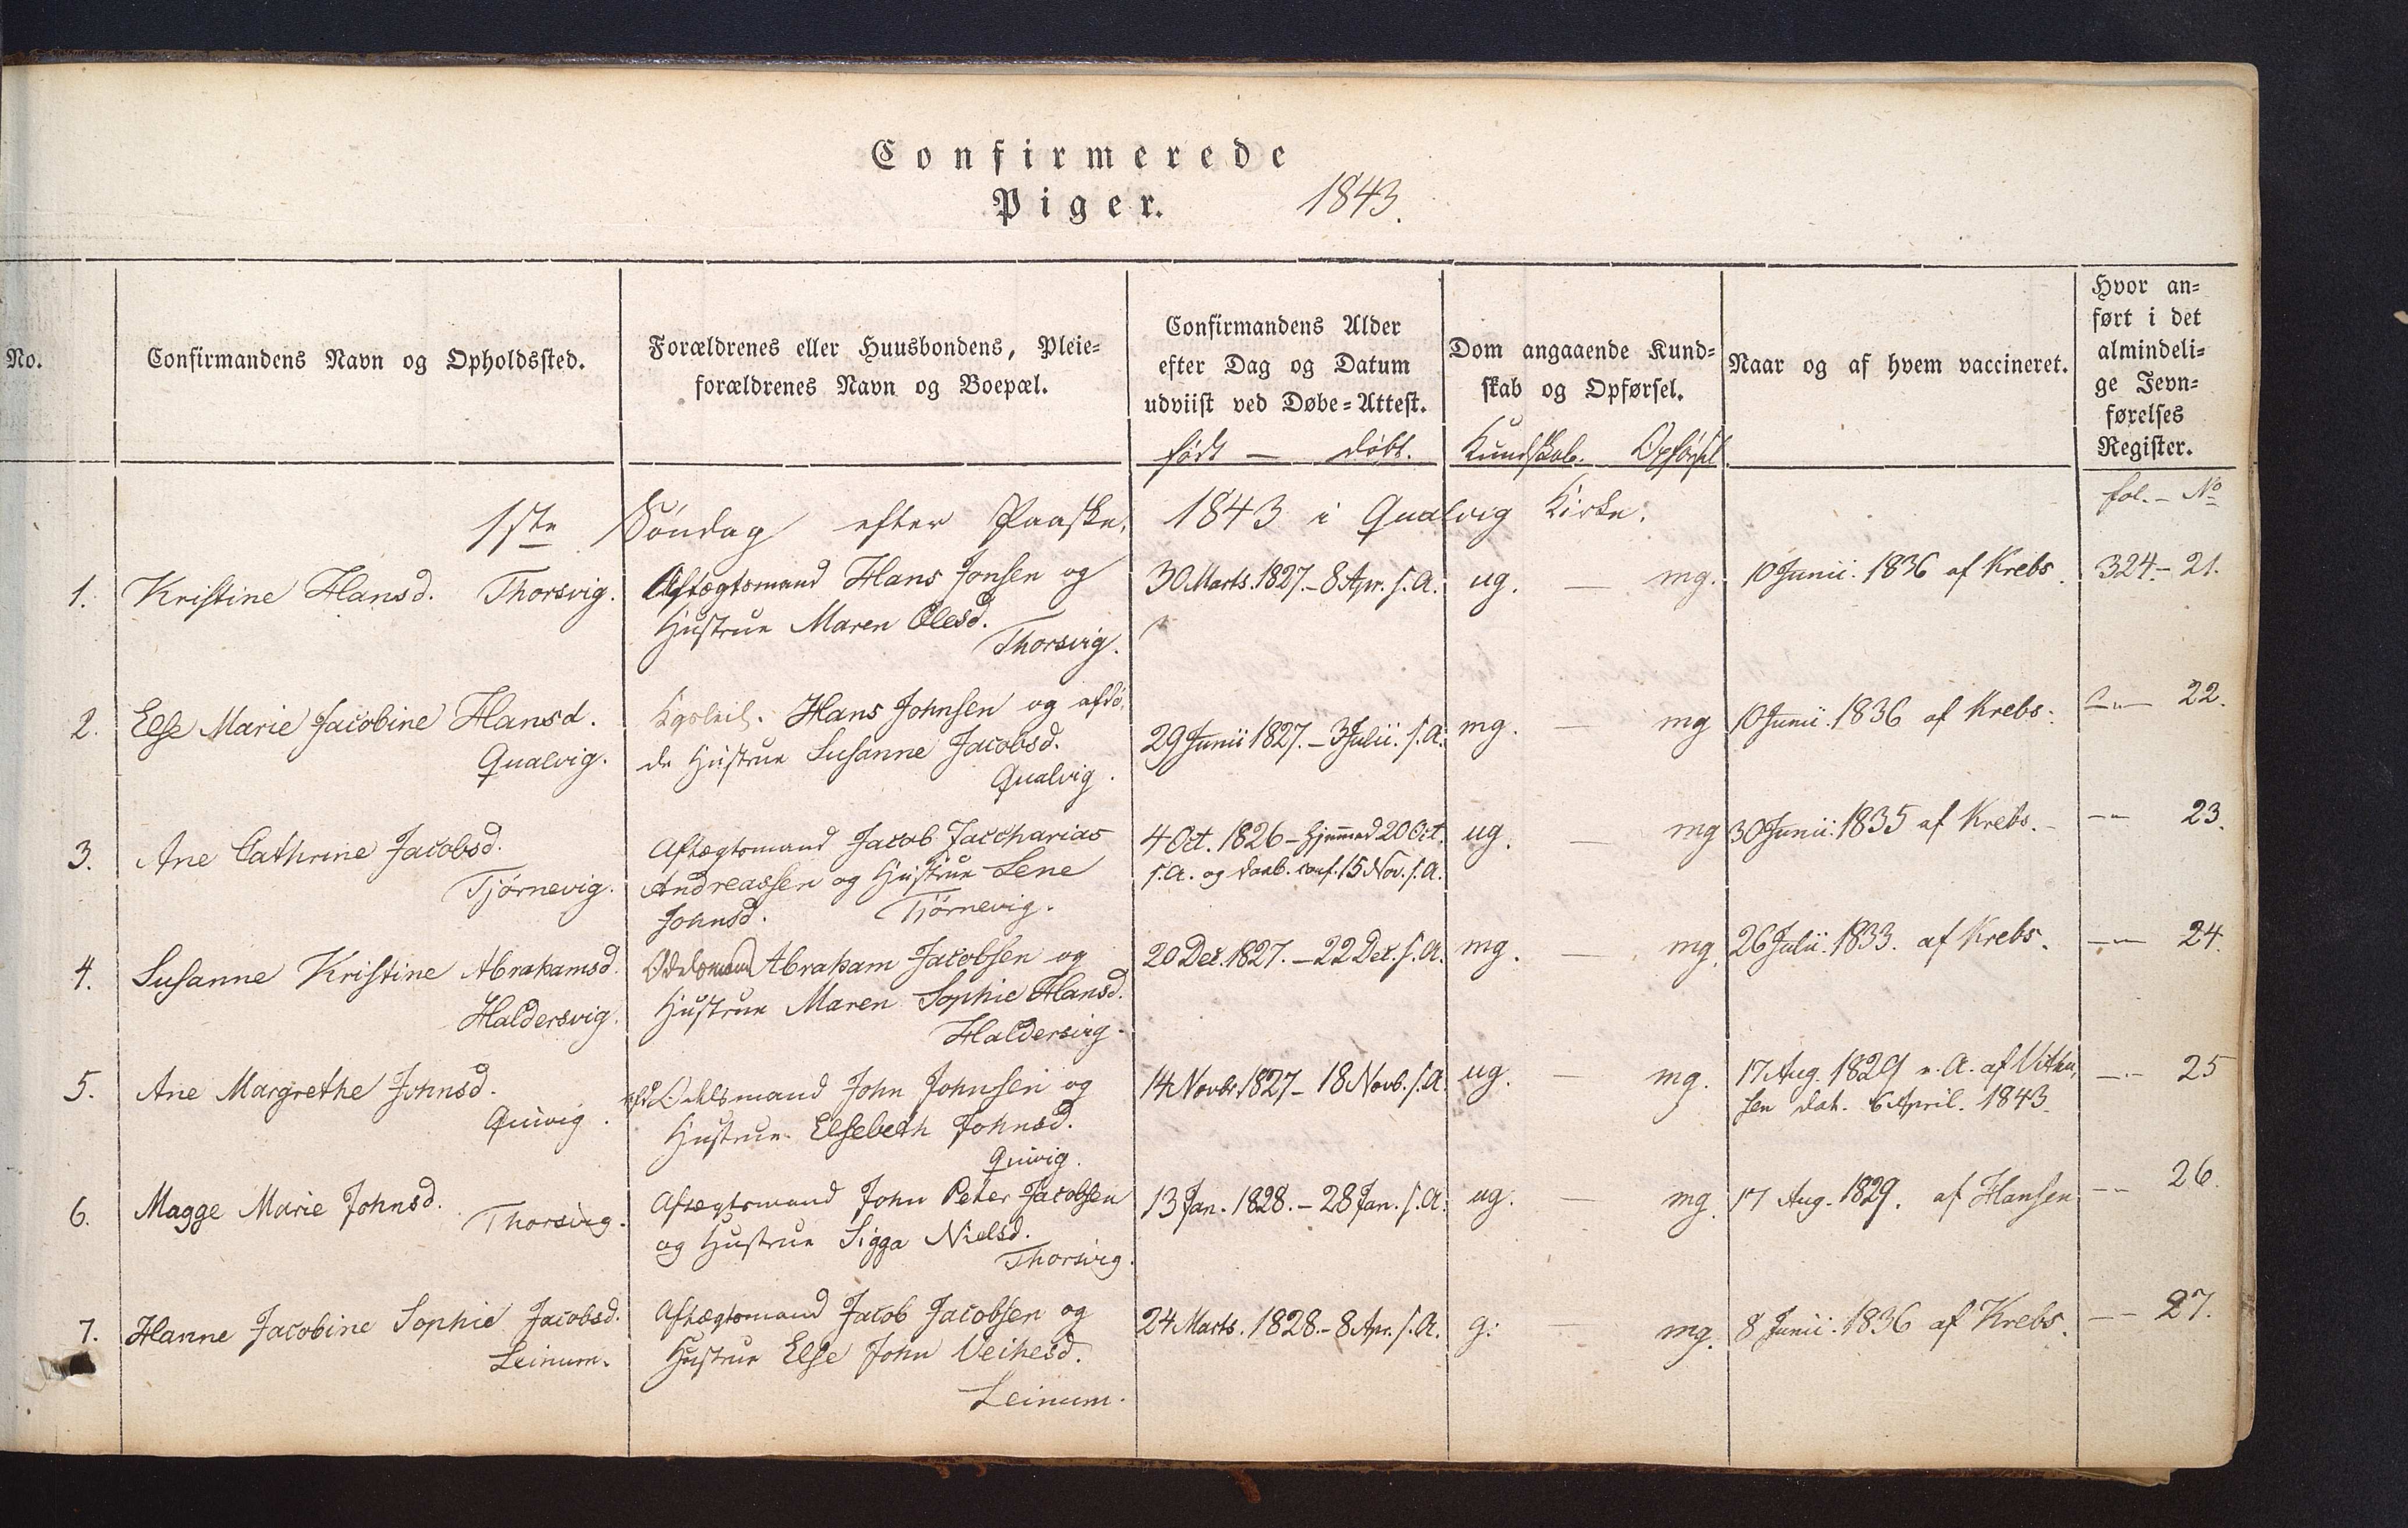 Confirmerede
Piger. 1843.
No.
Confirmandens Navn og Opholdssted.
Forældrenes eller Huusbondens, Pleie=
forældrenes Navn og Boepæl.
Confirmandens Alder
efter Dag og Datum
udviist ved Døbe=Attest.
født — døbt.
Dom angaaende Kund=
skab og Opførsel.
Kundskab. Opførsel
Naar og af hvem vaccineret.
Hvor an=
ført i det
almindeli=
ge Jevn=
førelses
Register.
fol. - No
1ste Søndag efter Paaske, 1843 i Qualvig Kirke.
1. Kristine Hansd. Thorsvig. Aftægtsmand Hans Jonsen og 30 Marts. 1827. - 8 Apr. s. A. ug. — mg. 10 Junii. 1836 af Krebs. 324. - 21.
Hustrue Maren Olesd.
Thorsvig.
2. Else Marie Jacobine Hansd. Hans Johnsen og afdø- 29 Junii 1827. - 3 Julii. s. A. mg. — mg 10 Junii. 1836 af Krebs. — 22.
Qualvig. de Hustrue Susanne Jacobsd.
Qualvig.
3. Ane Cathrine Jacobsd. Aftægtsmand Jacob Jaccharias 4 Oct. 1826 - hjemmed 20 Oct. ug. — mg 30 Junii. 1835 af Krebs. - — 23.
Tjørnevig. Andreassen og Hustrue Lene s. A. og daab. conf. 15 Nov. s. A.
Johnsd. Tjørnevig.
4. Susanne Kristine Abrahamsd. Odelsmand Abraham Jacobsen og 20 Dec. 1827. - 22 Dec. s. A. mg. — mg. 26 Julii. 1833. af Krebs. — 24.
Haldersvig. Hustrue Maren Sophie Hansd.
Haldersvig.
5. Ane Margrethe Johnsd. Odelsmand John Johnsen og 14 Novbr. 1827 - 18 Novb. s. A. ug. — mg. 17 Aug. 1829 e. A. af — 25
Quivig. Hustrue Elsebeth Johnsd. sen dat. 6 April. 1843.
Quivig.
6. Magge Marie Johnsd. Thorsvig. Aftægtsmand John Peter Jacobsen 13 Jan. 1828. - 28 Jan. s. A. ug. — mg. 17 Aug. 1829. af Hansen — 26.
og Hustrue Sigga Nielsd.
Thorsvig.
7. Hanne Jacobine Sophie Jacobsd. Aftægtsmand Jacob Jacobsen og 24 Marts. 1828. - 8 Apr. s. A. g: — mg. 8 Junii. 1836 af Krebs. — 27.
Leinum. Hustrue Else John Veihesd.
Leinum.